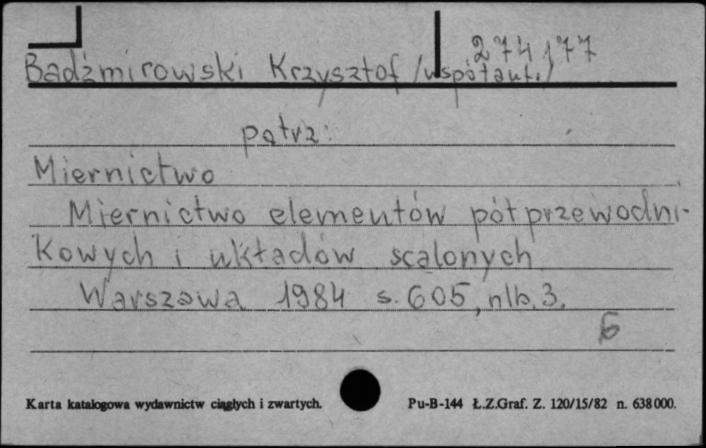 274177
Badźmirowski Krzysztof /współaut./
patrz:
Miernictwo
Miernictwo elementów półprzewodni-
kowych i układów scalonych
Warszawa 1984 s. 605, nlb. 3.
Karta katalogowa wydawnictw ciągłych i zwartych.
Pu-B-144 Ł.Z.Graf. Z. 120/15/82 n. 638000.